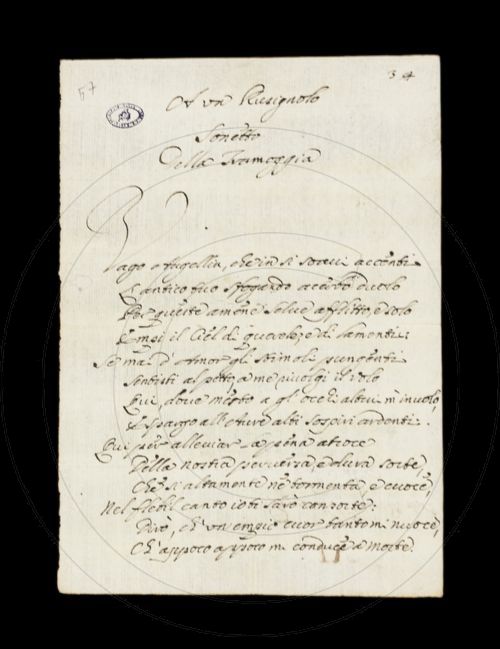 57
34
A un Rusignolo
Sonetto
Della Tramoggia
Vago Augellin, che in sì soavi accenti
L'antico tuo sfogando acerbo duolo
Per queste amene selve afflitto, e solo
Empi il Ciel di querele, e di lamenti:
Se mai d'Amor gli stimoli pungenti
Sentisti al petto, a me rivolgi il volo
Qui, dove mesto a gl'occhi altrui m'involo,
E spargo all'Aure alti sospiri ardenti.
Qui per alleviar la pena atroce
Della nostra perversa, e dura sorte,
Che sì altamente ne tormenta, e cuoce,
Nel flebil canto io ti sarò consorte:
Dirò, ch'un empio cuor tanto mi nuoce,
Ch'appoco appoco mi conduce a morte.